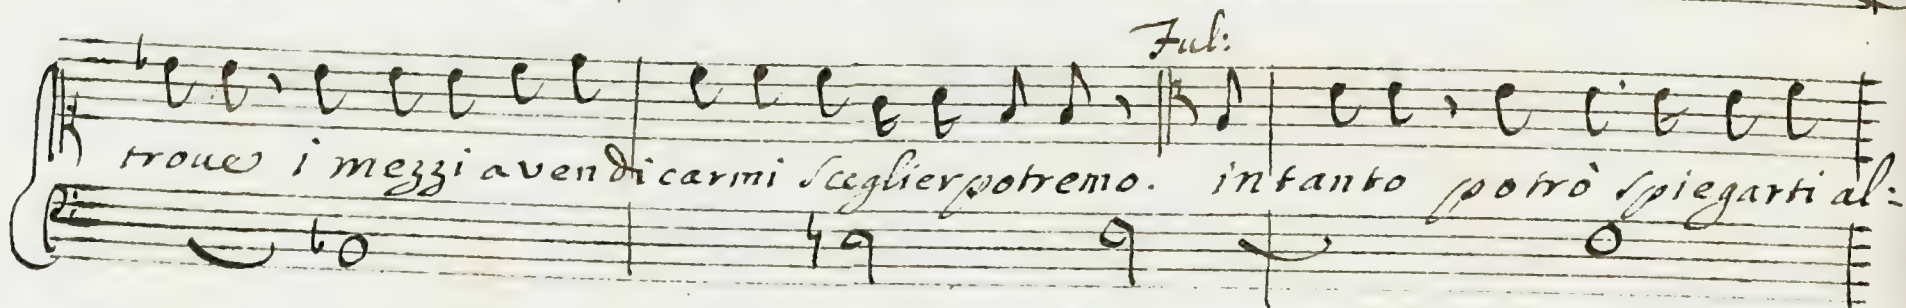 Ful:
troue i mezzi a vendicarmi sceglier potremo. intanto potrò spiegarti al: